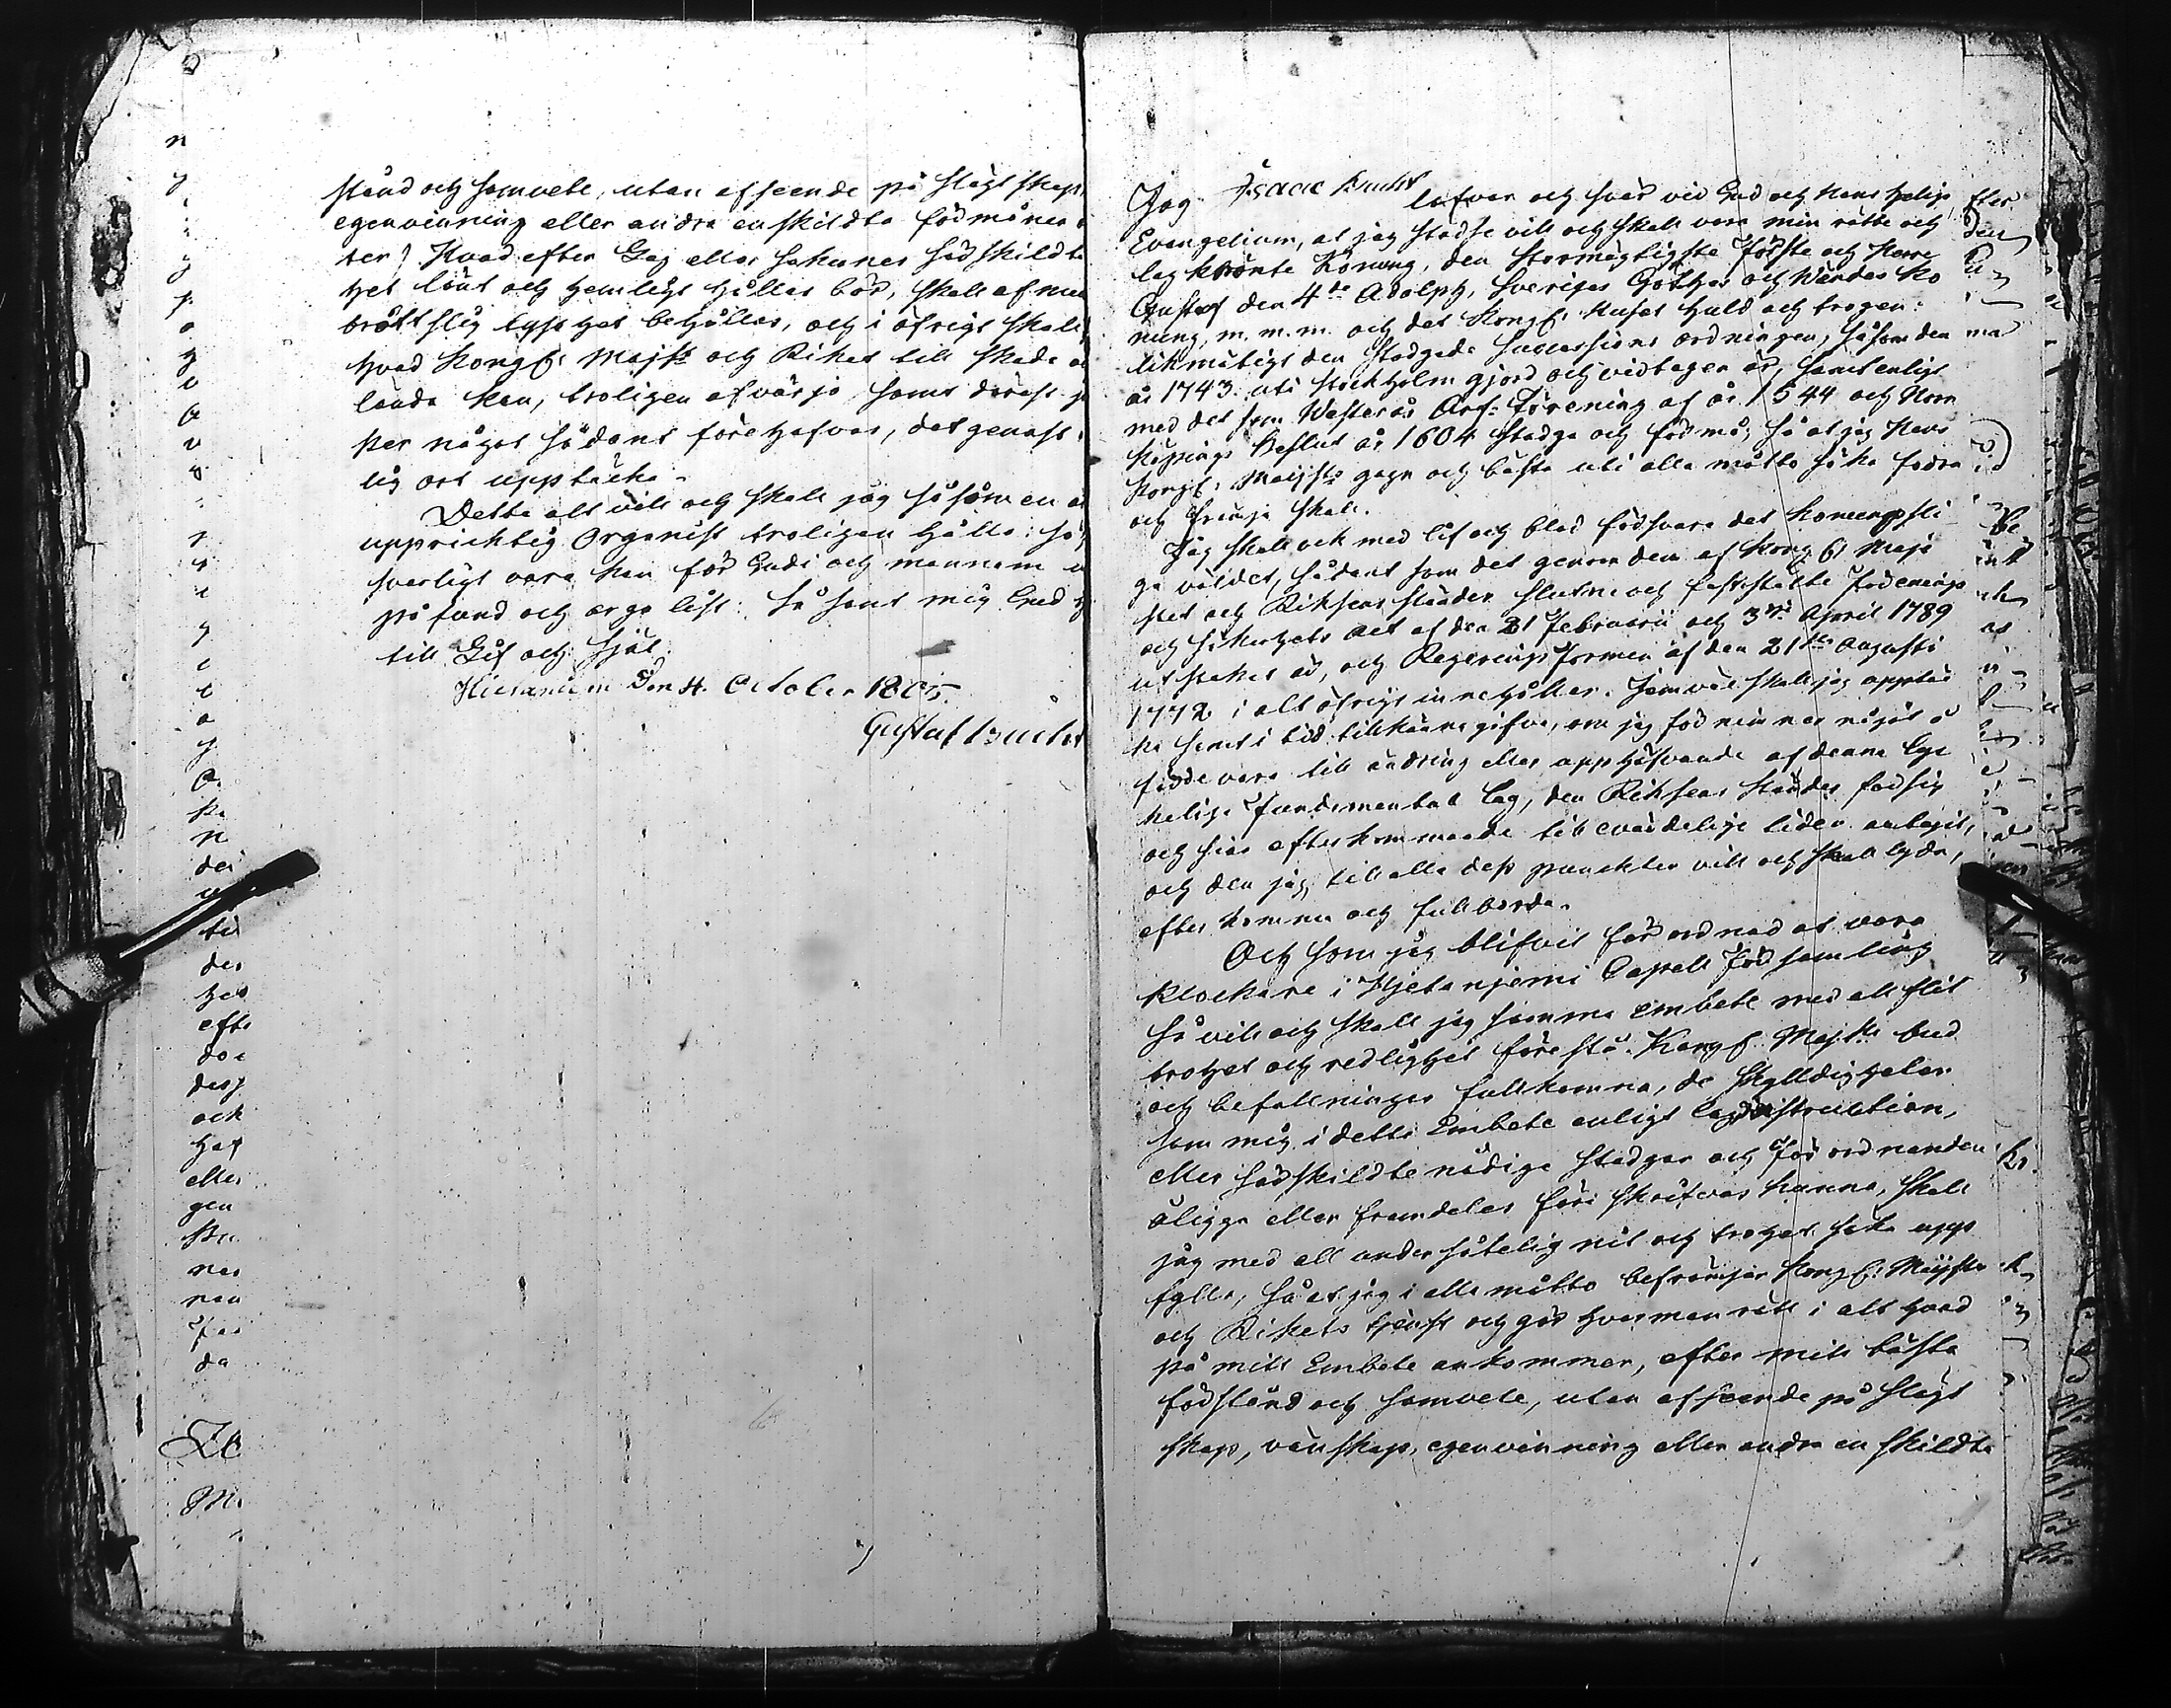 stånd och samvete, utan afseende på slägtskap,
egenvinning eller andra enskildta förmåner
ter. Hvad efter Lag eller sakernes särskildta
het lönt och hemligt hållas bör, skall af mig
bråttslig tysthet behållas, och i öfrigt skall
hvad Kongl: Majst och Riket till skada
lända kan, troligen afvärja samt deräst
per något sådant förehafver, det genast
lig ort upptäcka.
Detta alt vill och skall jag såsom en
upprichtig Organist troligen hålla: så
svarligt vara kan för Gudi och mannom
på fund och arga list: Så sant mig Gud
till Lif och Själ.
Hietaniemi Den 4. October 1805.
Gustaf Bucht
Jag Isaac Bucht lofvar och svär vid Gud och Hans helige
Evangelium, at jag städse vill och skall vara min rätte och
lagkrönte Konung, den Stormägtigste Förste och Herre
Gustaf den 4de Adolph, Sveriges Göthes och Wendes Ko
nung, m. m. m. och det Kongl. Huset huld och trogen:
likmätigt den stadgade Successions ordningen, såsom den
år 1743 uti Stockholm gjord och vidtagen är, samt enligt
med det som Westerås Arf-Förening af år 1544 och Norr
köpings Beslut år 1604 stadga och förmå; så at jag Hans
Kongl. Majsts gagn och bästa uti alla måtto söka fodra
och främja skall.
Jag skall ock med lif och blod försvara det Konungsli
ga väldet, sådant som det genom den af Kongl Maje
stet och Riksens ständer slutne och fastställte Förenings
och Säkerhets Act af den 21 Februarii och 3die April 1789
utstakat är, och Regerings Formen af den 21sta Augusti
1772 i alt öfrigt innehåller. Jemväl skall jag upptäc
ka samt i tid tillkänna gifva, om jag förnimmer något å
färde vara till ändring eller upphäfvande af denna Oye
kelige Fundamental Lag, den Riksens Ständer för sig
och sina efterkommande till evärdelige tider antagit,
och den jag till alla dess puncter vill och skall lyda,
efter komma och fullborda.
Och som jag blifvit förordnad at vara
Klockare i Hjetanjemi Capell Församling
så vill och skall jag samma embete med all flit
trohet och redlighet förestå. Kongl. Majsts bud
och befallningar fullkomna, de Skylldigheter
som mig i detta Embete enligt lag, Instruction,
eller särskildte nådige Stadgar och Förordnanden
åligga eller framdeles före skrifvas kunna, skall
jag med all undersåtelig nit och trohet söka upp
fylla, så at jag i alla måtto befrämjar Kongl: Majsts
och Rikets tjenst och gör hvarman rätt i alt hvad
på mitt Embete ankommer, efter mitt bästa
förstånd och samvete, utan afseende på Slägt
skap, vänskap, egenvinning eller andra enskildta